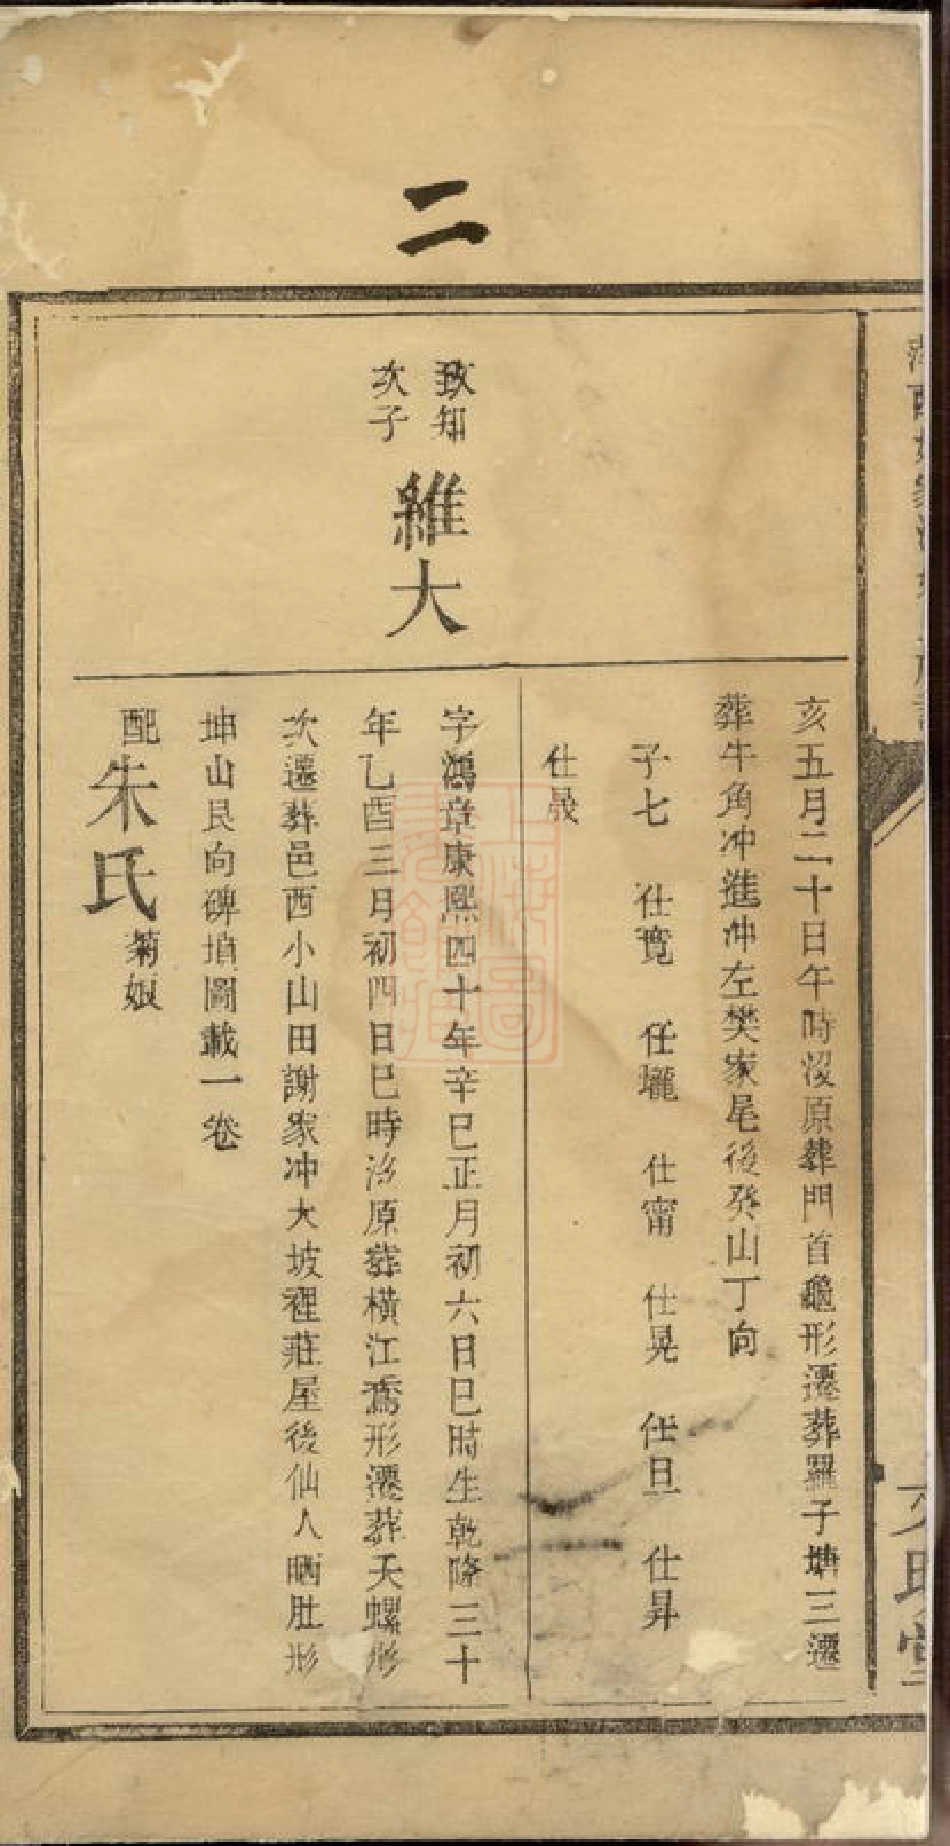 二
亥五月二十日午時沒原葬門首龜形遷葬羅子塘三遷
葬牛角冲進冲左樊家尾後癸山丁向
子七 仕覽 仕瓏 仕甯 仕晃 仕旦 仕昇
仕晟
致知
次子
維大
字鴻章康熙四十年辛巳正月初六日巳時生乾隆三十
年乙酉三月初四日巳時沒原葬橫江鴌形遷葬天螺形
次遷葬邑西小山田謝家冲大坡裡莊屋後仙人晒肚形
坤山艮向碑墳圖載一卷
配朱氏菊娘